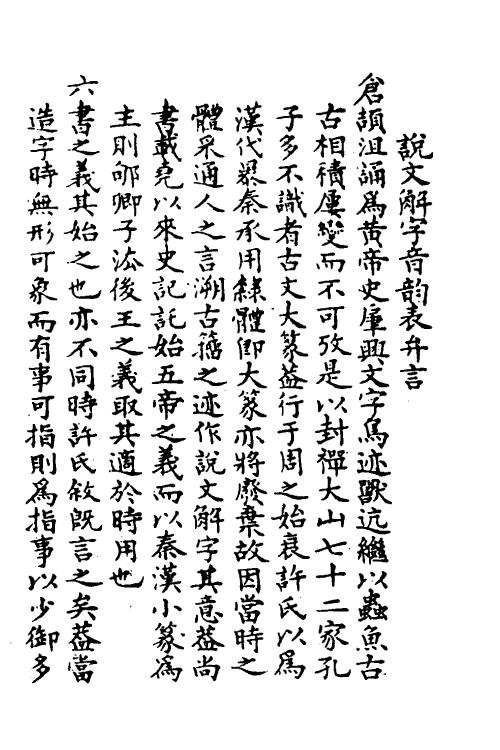 說文解字音韵表弁言
倉頡沮誦爲黄帝史庫興文字鳥迹獸迒繼以蟲魚古
古相積屢變而不可攷是以封禪大山七十二家孔
子多不識者古文大篆葢行于周之始衰許氏以爲
漢代㬪秦承用隸體卽大篆亦將廢棄故因當時之
體采通人之言溯古籒之迹作說文解字其意葢尚
書載堯以來史記託始五帝之義而以秦漢小篆爲
主則郇卿子㳒後王之義取其適於時用也
六書之義其始之也亦不同時許氏敘旣言之矣葢當
造字時無形可象而有事可指則爲指事以少御多